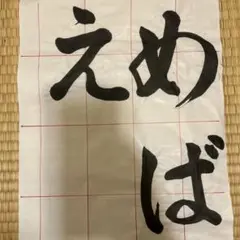 めば
え